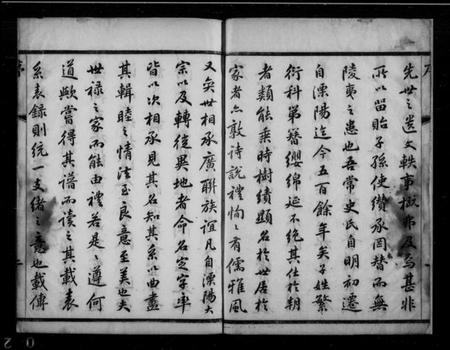 先世之遺文軼事概弗及焉甚非
所以留貽子孫使纘承罔替而無
陵夷之患也吾常史氏自明初遷
自溧陽迄今五百餘年矣子姓繁
衍科第簪纓綿延不絕其仕於朝
者類能乘時樹績顯名於世居於
家者亦敦詩說禮恂恂有儒雅風
又矣世相承廣聯族誼凡自溧陽大
宗以及轉徙異地者命名定字率
皆以次相承見其名知其系以曲盡
其輯睦之情法至良意至美也夫
世祿之家而能由禮若是之遵何
道歟嘗得其譜而讀之其載表
系表錄則統一支緒之意也載傳
序
二
0 2